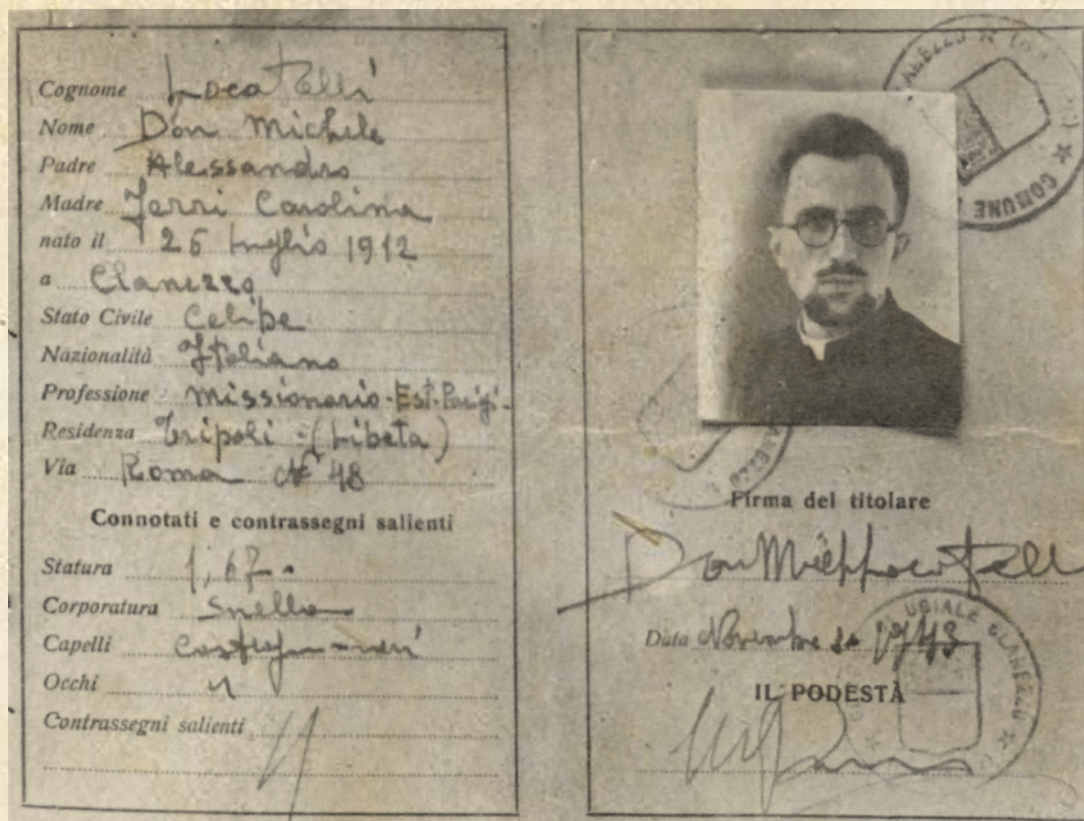 Cognome Locatelli
Nome Don Michele
Padre Alessandro
Madre Jerri Carolina
nato il 26 luglio 1912
a Clanezzo
Stato Civile Celibe
Nazionalità Italiano
Professione Missionario-Est-Parigi-
Residenza Tripoli - (Libeta)
Via Roma N° 48
Connotati e contrassegni salienti
Statura 1,67.
Corporatura Snella
Capelli castagni-neri
Occhi "
Contrassegni salienti
COMUNE
Firma del titolare
Don Mich Locatelli
Data Novembre 1943
UBIALE CLANEZZO
IL PODESTÀ